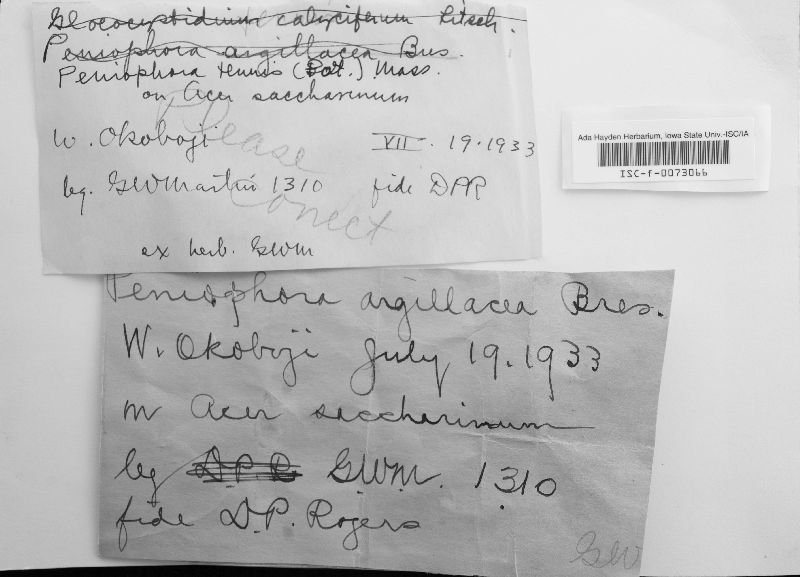 Gloeocystidium calyciferum Litsch.
Peniophora argillacea Bres.
Peniophora tenuis (Pat.) Mass.
on Acer saccharinum
Please
W. Okoboji VII . 19 . 1933
leg. GWMartin 1310 fide DPR
Correct
ex herb. GWM
Ada Hayden Herbarium, Iowa State Univ.-ISC/IA
ISC-f-0073066
Peniophora argillacea Bres.
W. Okoboji July 19. 1933
on Acer saccharinum
leg D.P.R. GWM. 1310
fide D.P. Rogers
GW